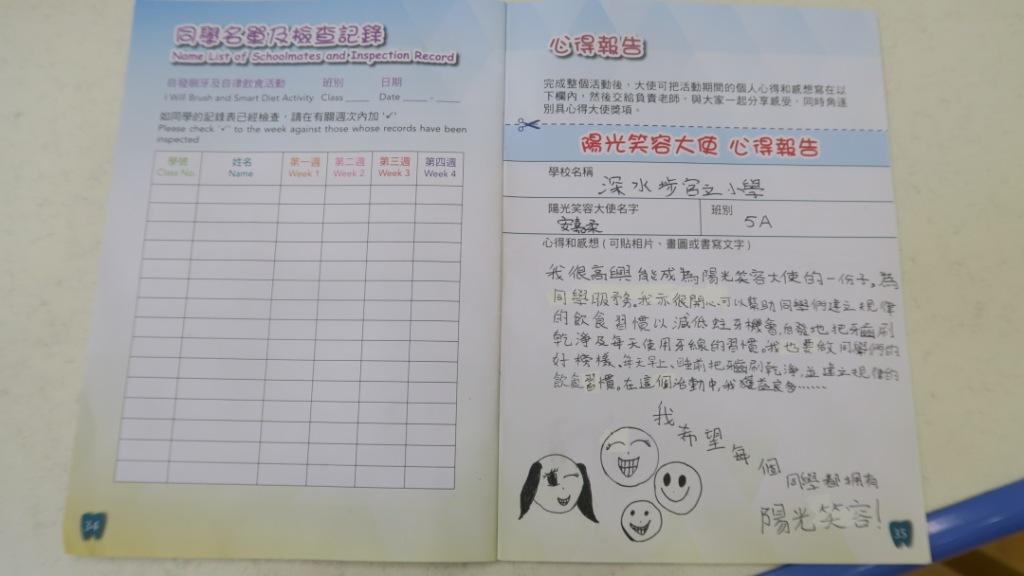 同學名單及檢查記錄
Name List of Schoolmates and Inspection Record
自發刷牙及自律飲食活動 班別 日期
I Will Brush and Smart Diet Activity Class ____ Date ____ - ____
如同學的記錄表已經檢查，請在有關週次內加 '✓'
Please check '✓' to the week against those whose records have been
inspected
學號 姓名 第一週 第二週 第三週 第四週
Class No. Name Week 1 Week 2 Week 3 Week 4
34
心得報告
完成整個活動後，大使可把活動期間的個人心得和感想寫在以
下欄內，然後交給負責老師，與大家一起分享感受，同時角逐
別具心得大使獎項。
陽光笑容大使 心得報告
學校名稱
深水埗官立小學
陽光笑容大使名字 班別
安嘉柔 5A
心得和感想 ( 可貼相片、畫圖或書寫文字 )
我很高興能成為陽光笑容大使的一份子。為
同學服務。我亦很開心可以幫助同學們建立規律
的飲食習慣以減低蛀牙機會，自發地把牙齒刷
乾淨及每天使用牙線的習慣。我也要做同學們的
好榜樣、每天早上、睡前把牙齒刷乾淨，並建立規律的
飲食習慣。在這個活動中，我獲益良多……
我希望每個
同學都擁有
陽光笑容！
35